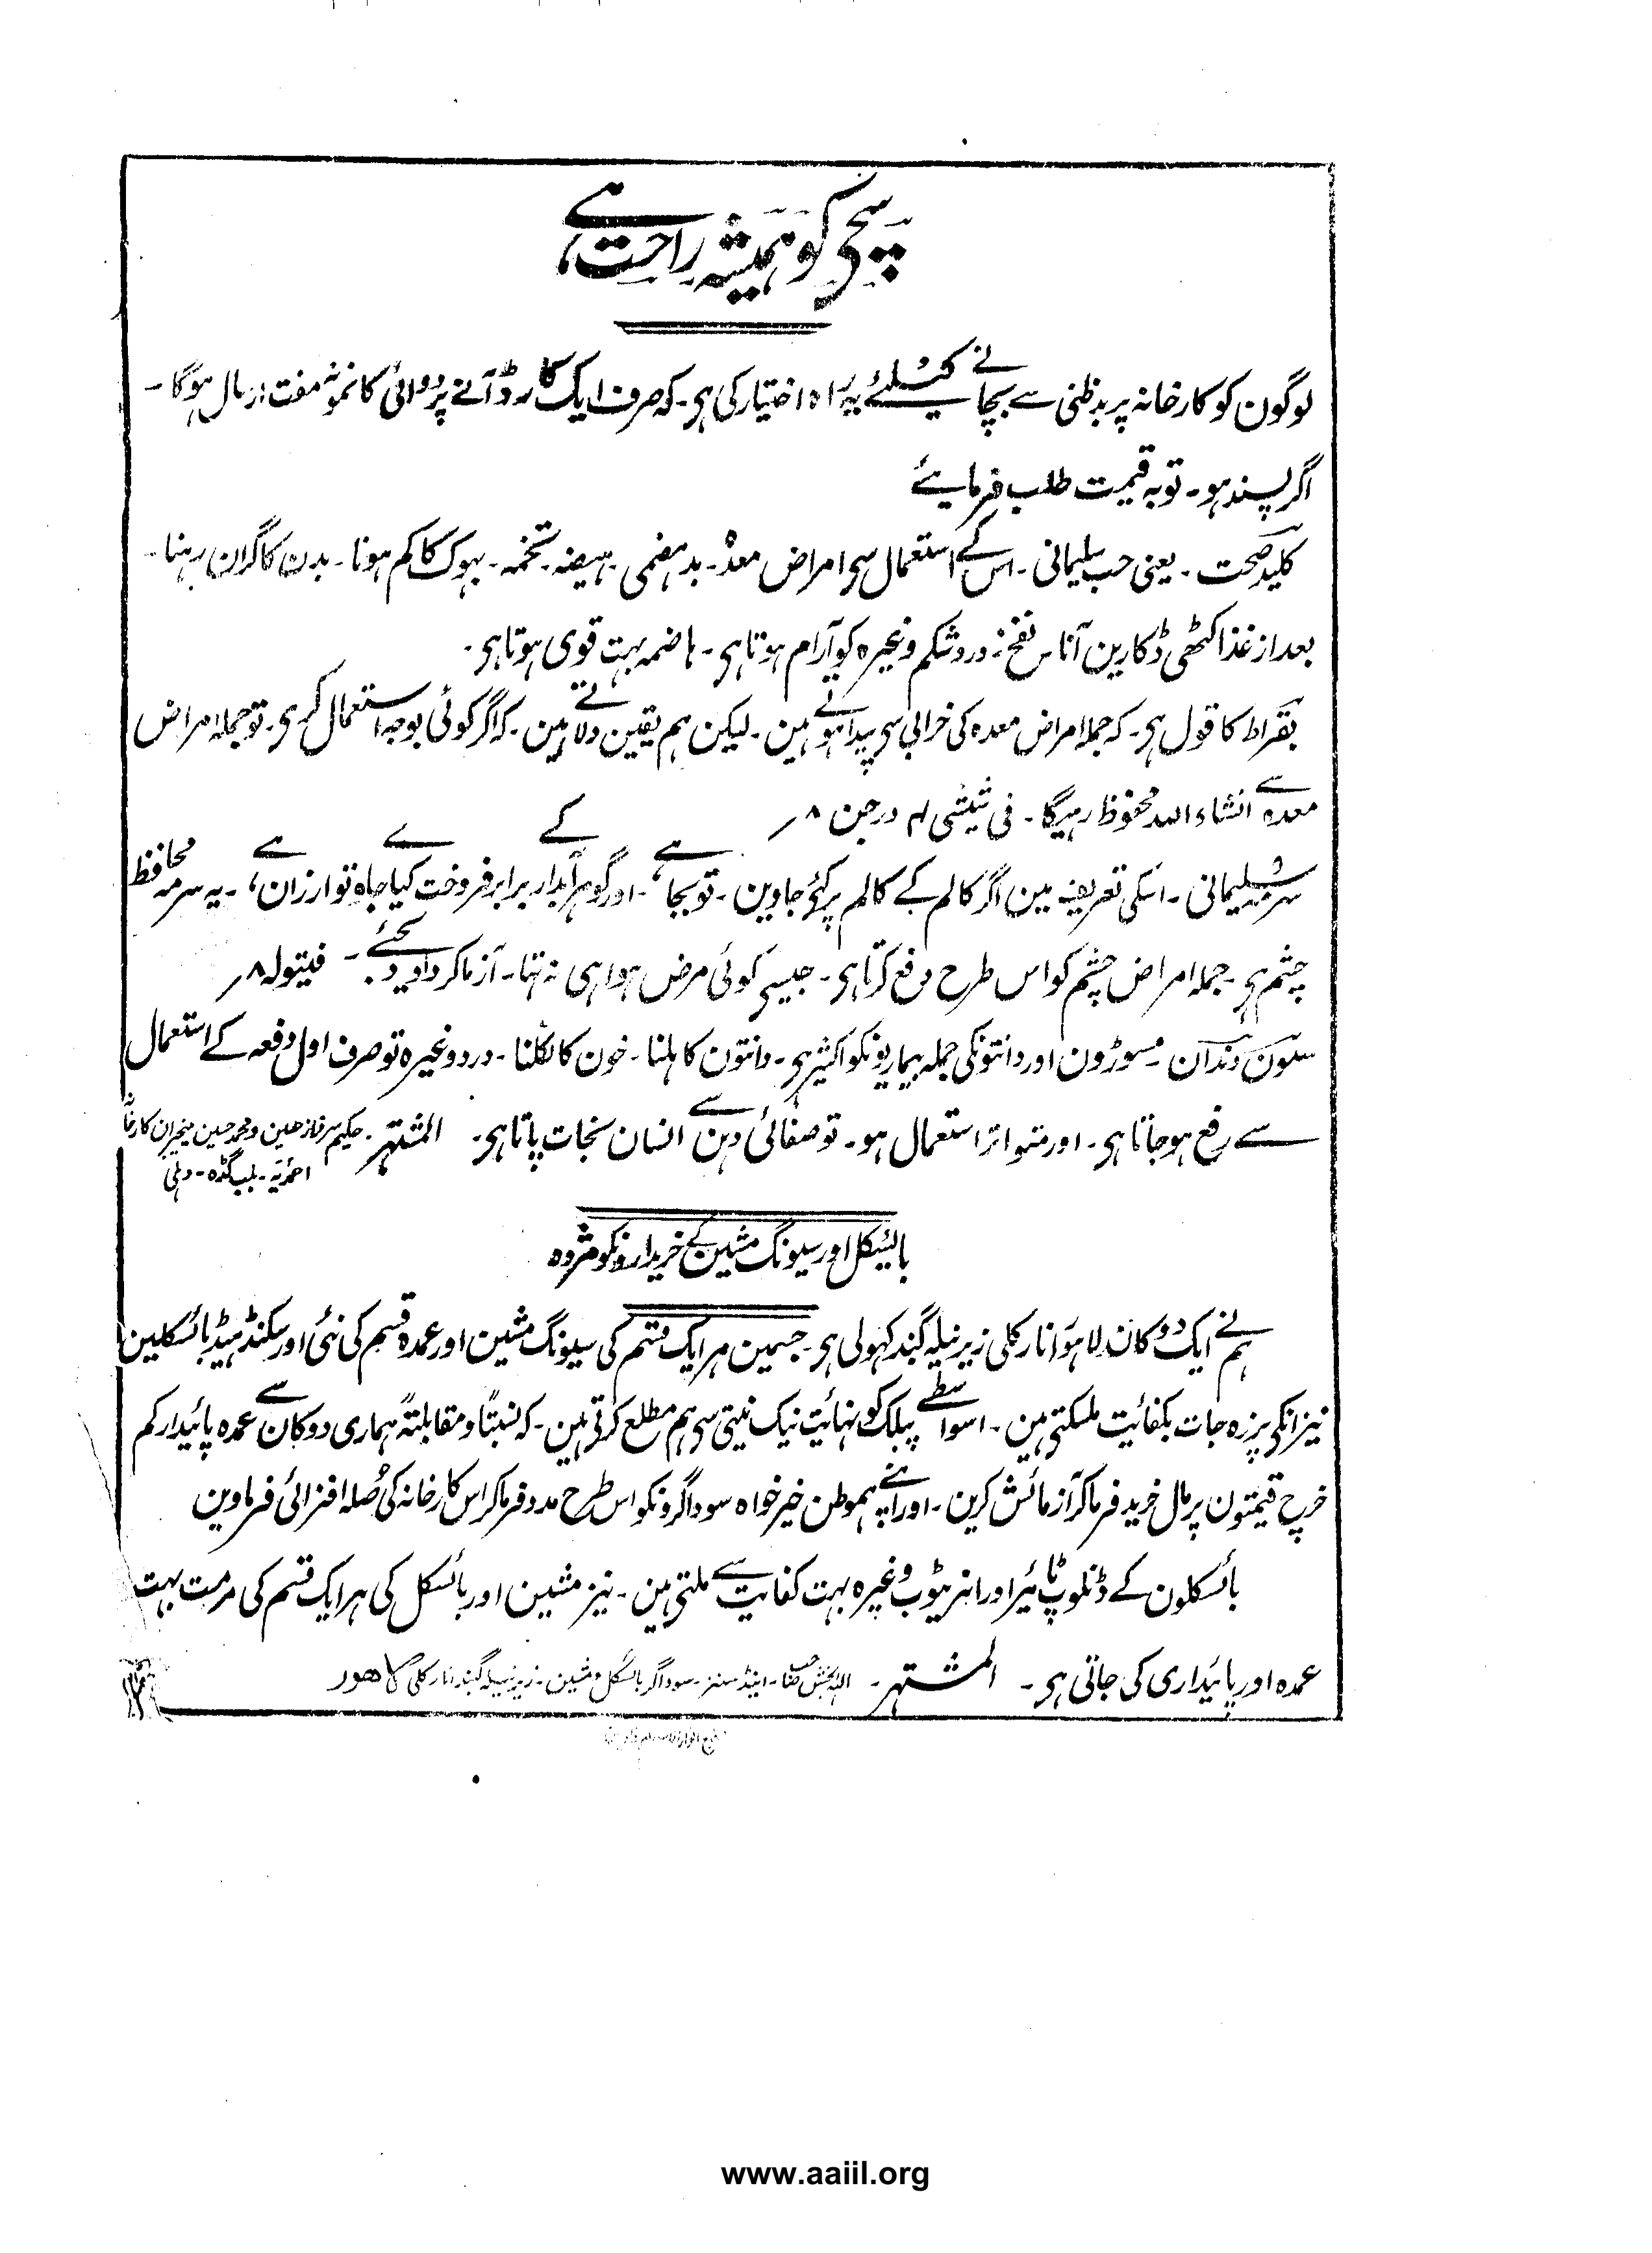 سچے کو ہمیشہ راحت ہے
لوگون کو کارخانہ پر بدظنی سے بچانے کیلئے یہ راہ اختیار کی ہی۔ کہ صرف ایک کارڈ آنے پر دوائی کا نمونہ مفت ارسال ہوگا۔
اگر پسند ہو۔ تو بہ قیمت طلب فرمایئے
کلید صحت۔ یعنی حب سلیمانی۔ اس کے استعمال سی امراض معدہ۔ بدہضمی۔ ہیضہ۔ تخمہ۔ بہوک کا کم ہونا۔ بدن کا گران رہنا۔
بعد از غذا کٹھی ڈکارین آنا۔ نفخ۔ درد شکم وغیرہ کو آرام ہوتا ہی۔ ہاضمہ بہت قوی ہوتا ہی۔
بقراط کا قول ہی۔ کہ جملہ امراض معدہ کی خرابی سی پیدا ہوتے ہین۔ لیکن ہم یقین دلاتے ہین۔ کہ اگر کوئی بوجہ استعمال کری۔ تو جملہ امراض
معدہ سے انشاء اللہ محفوظ رہیگا۔ فی شیشی ۴ر درجن ۸ر
سرمہ سلیمانی۔ اسکی تعریف مین اگر کالم کے کالم پر کئے جاوین۔ تو بجا ہے۔ اور گوہر آبدار کے برابر فروخت کیا جاوے تو ارزان ہے، یہ سرمہ محافظ
چشم ہی۔ جملہ امراض چشم کو اس طرح دفع کرتا ہی۔ جیسی کوئی مرض ہوا ہی نہ تہا۔ آزما کر داد دیجئے۔ فیتولہ ۸ر
سنون دندان۔ مسوڑون اور دانتونکی جملہ بیماریونکو اکثیر ہی۔ دانتون کا ہلنا۔ خون کا نکلنا۔ درد وغیرہ تو صرف اول دفعہ کے استعمال
سے رفع ہو جاتا ہی۔ اور متواتر استعمال ہو۔ تو صفائی دہن سے انسان نجات پاتا ہی۔ المشتہر۔ حکیم سرفراز حسین و محمد حسین منیجران کارخانہ
احمدیہ۔ بلب گڈہ۔ دہلی
بائیسکل اور سیونگ مشین کے خریدارونکو مژدہ
ہم نے ایک دوکان لاہور انارکلی زیر نیلہ گنبد کہولی ہی۔ جسمین ہر ایک قسم کی سیونگ مشین اور عمدہ قسم کی نئی اور سکنڈ ہینڈ بائسکلین
نیز انکی پرزہ جات بکفائیت ملسکتی ہین۔ اسواسطے پبلک کو نہائیت نیک نیتی سی ہم مطلع کرتی ہین۔ کہ نسبتاً و مقابلتہً ہماری دوکان سے عمدہ پائیدار کم
خرچ قیمتون پر مال خرید فرما کر آزمائش کرین۔ اور اپنے ہموطن خیر خواہ سوداگرونکو اس طرح مدد فرما کر اس کارخانہ کی حُصلہ افزائی فرماوین
بائسکلون کے ڈنلوپ ٹائیر اور انر ٹیوب وغیرہ بہت کفایت سے ملتی ہین۔ نیز مشین اور بائسکل کی ہر ایک قسم کی مرمت بہت
عمدہ اور پائیداری کی جاتی ہی۔ المشتہر۔ اللہ بخش صاحب۔ اینڈ سنز۔ سوداگر بائسکل و مشین۔ زیر نیلہ گنبد انارکلی لاھور
www.aaiil.org